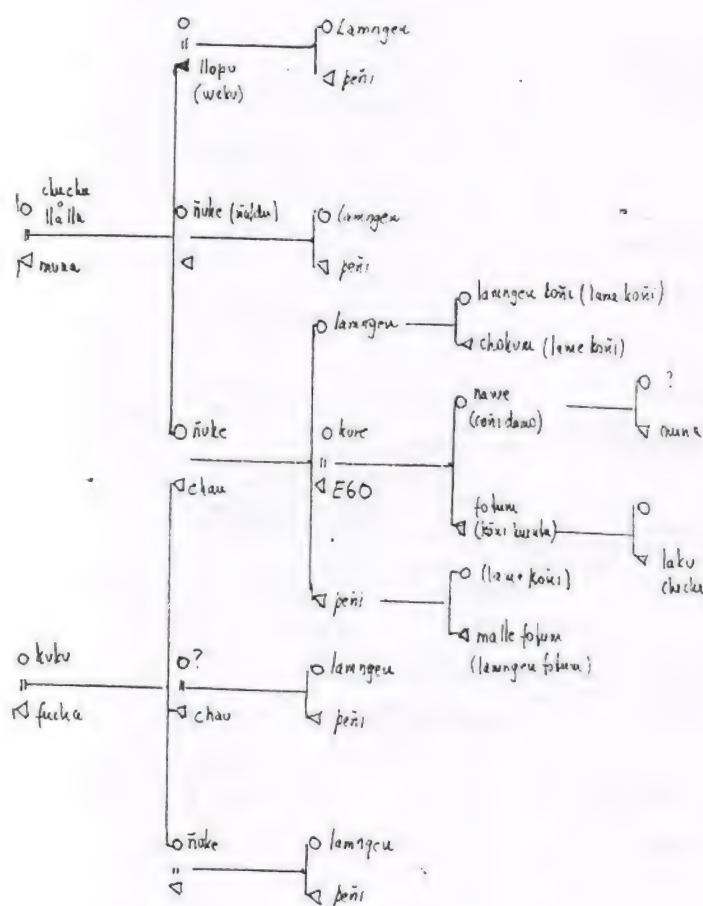 Lamngen
llopu
(weku)
peñi
chuchu
llälla
ñuke (ñaldu)
lamngen
muna
peñi
lamngen
lamngen koñi (lame koñi)
chokum (lame koñi)
ñuke
kure
nawe
(coñi domo)
?
muna
chau
EGO
fotum
laku
chechu
peñi
(lame koñi)
malle fotum
(lamngen fotum)
kuku
?
lamngen
fucha
chau
peñi
ñuke
lamngen
peñi